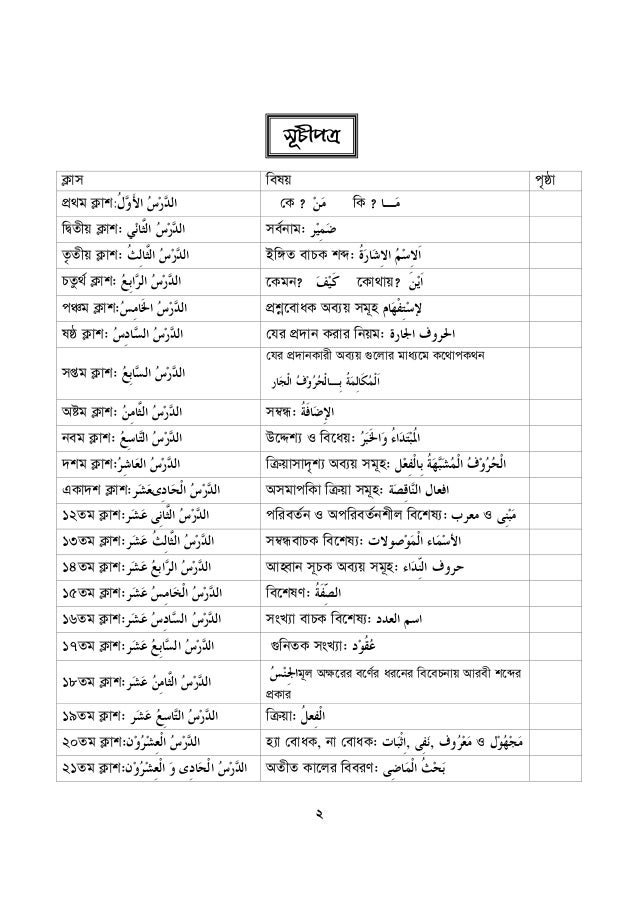 সূচীপত্র
ক্লাস বিষয় পৃষ্ঠা
প্রথম ক্লাশ:الدَّرْسُ الأَوَّلُ কে ? مَنْ কি ? مَــا
দ্বিতীয় ক্লাশ: الدَّرْسُ الثَّانِيْ সর্বনাম: ضَمِيْر
তৃতীয় ক্লাশ: الدَّرْسُ الثَّالِثُ ইঙ্গিত বাচক শব্দ: اَلاِسْمُ الاِشَارَةُ
চতুর্থ ক্লাশ: الدَّرْسُ الرَّابِعُ কেমন? كَيْفَ কোথায়? اَيْنَ
পঞ্চম ক্লাশ:الدَّرْسُ الْخَامِسُ প্রশ্নবোধক অব্যয় সমূহ لِإسْتِفْهَام
ষষ্ঠ ক্লাশ: الدَّرْسُ السَّادِسُ যের প্রদান করার নিয়ম: الحروف الجارة
সপ্তম ক্লাশ: الدَّرْسُ السَّابِعُ যের প্রদানকারী অব্যয় গুলোর মাধ্যমে কথোপকথন
اَلْمُكَالِمَةُ بِــالْحُرُوْفُ الْجَار
অষ্টম ক্লাশ: الدَّرْسُ الثَّامِنُ সম্বন্ধ: الإِضَافَةُ
নবম ক্লাশ: الدَّرْسُ التَّاسِعُ উদ্দেশ্য ও বিধেয়: الْمُبْتَدَاءُ وَالْخَبَرُ
দশম ক্লাশ:الدَّرْسُ العَاشِرُ ক্রিয়াসাদৃশ্য অব্যয় সমূহ: الْحُرُوْفُ الْمُشَبَّهَةُ بِالْفِعْلِ
একাদশ ক্লাশ:الدَّرْسُ الْحَادِىعَشَرَ অসমাপিকা ক্রিয়া সমূহ: افعال النَّاقِصَة
১২তম ক্লাশ:الدَّرْسُ الثَّانِى عَشَرَ পরিবর্তন ও অপরিবর্তনশীল বিশেষ্য: معرب ও مَبْنِى
১৩তম ক্লাশ:الدَّرْسُ الثَّالِثُ عَشَرَ সম্বন্ধবাচক বিশেষ্য: الأَسْمَاء الْمَوْصولات
১৪তম ক্লাশ:الدَّرْسُ الرَّابِعُ عَشَرَ আহ্বান সূচক অব্যয় সমূহ: حروف النِّدَاء
১৫তম ক্লাশ:الدَّرْسُ الْخَامِسُ عَشَرَ বিশেষণ: الصِّفَةُ
১৬তম ক্লাশ:الدَّرْسُ السَّادِسُ عَشَرَ সংখ্যা বাচক বিশেষ্য: اسم العدد
১৭তম ক্লাশ:الدَّرْسُ السَّابِعُ عَشَرَ গুনিতক সংখ্যা: عُقُوْد
১৮তম ক্লাশ:الدَّرْسُ الثَّامِنُ عَشَرَ الْجِنْسُমূল অক্ষরের বর্ণের ধরনের বিবেচনায় আরবী শব্দের
প্রকার
১৯তম ক্লাশ: الدَّرْسُ التَّاسِعُ عَشَرَ ক্রিয়া: الْفِعلُ
২০তম ক্লাশ:الدَّرْسُ الْعِشْرُوْن হ্যা বোধক, না বোধক: اِثْبَات, نَفِى, مَعْرُوف ও مَجْهُوْل
২১তম ক্লাশ:الدَّرْسُ الْحَادِى وَ الْعِشْرُوْن অতীত কালের বিবরণ: بَحْثُ الْمَاضِى
২